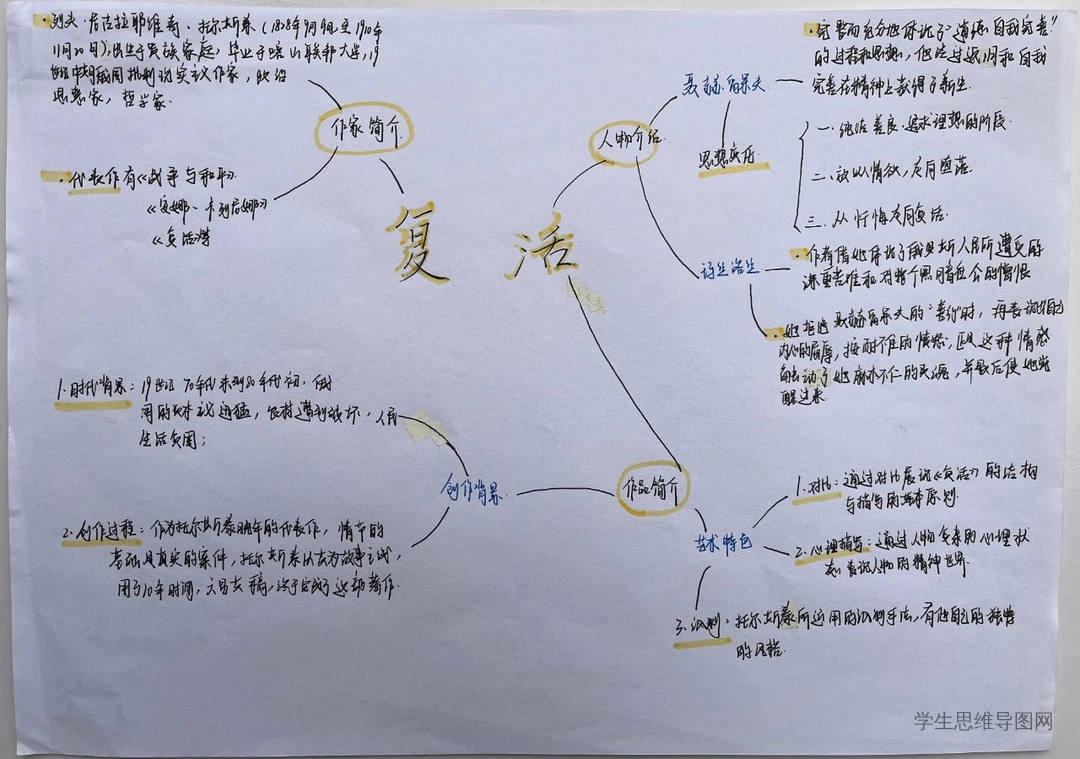 列夫·尼古拉耶维奇·托尔斯泰(1828年9月9日至1910年
11月20日),出生于贵族家庭,毕业于喀山联邦大学,19
世纪中期俄国批判现实主义作家,政治
思想家,哲学家.
作家简介
代表作有《战争与和平》
《安娜·卡列尼娜》
《复活》等
复活
人物介绍
聂赫留朵夫
完整而充分地体现了"道德自我完善"
的过程和思想,他经过返归和自我
完善在精神上获得了新生.
思想变化
一.纯洁善良.追求理想的阶段.
二.放纵情欲,走向堕落.
三.从忏悔走向复活.
作者借她体现了俄罗斯人民所遭受的
深重苦难和对整个黑暗社会的愤恨
她拒绝聂赫留朵夫的"善行"时,
内心的屈辱,按耐不住的愤怒,这种情感
触动了她麻木不仁的灵魂,并最后使她觉
醒过来
1.时代背景:19世纪70年代末到80年代初,俄
生活贫困;
创作背景.
2.创作过程:作为托尔斯泰晚年的代表作,情节的
基础是真实的案件,托尔斯泰
用了10年时间,六易其稿,终于完成了这部著作.
作品简介
艺术特色
1.对比:通过对比展现《复活》的结构
与描写的基本原则.
2.心理描写:通过人物复杂的心理状
态表现人物的精神世界.
3.讽刺:托尔斯泰所运用的讽刺手法,有他自己的独特
的风格.
学生思维导图网